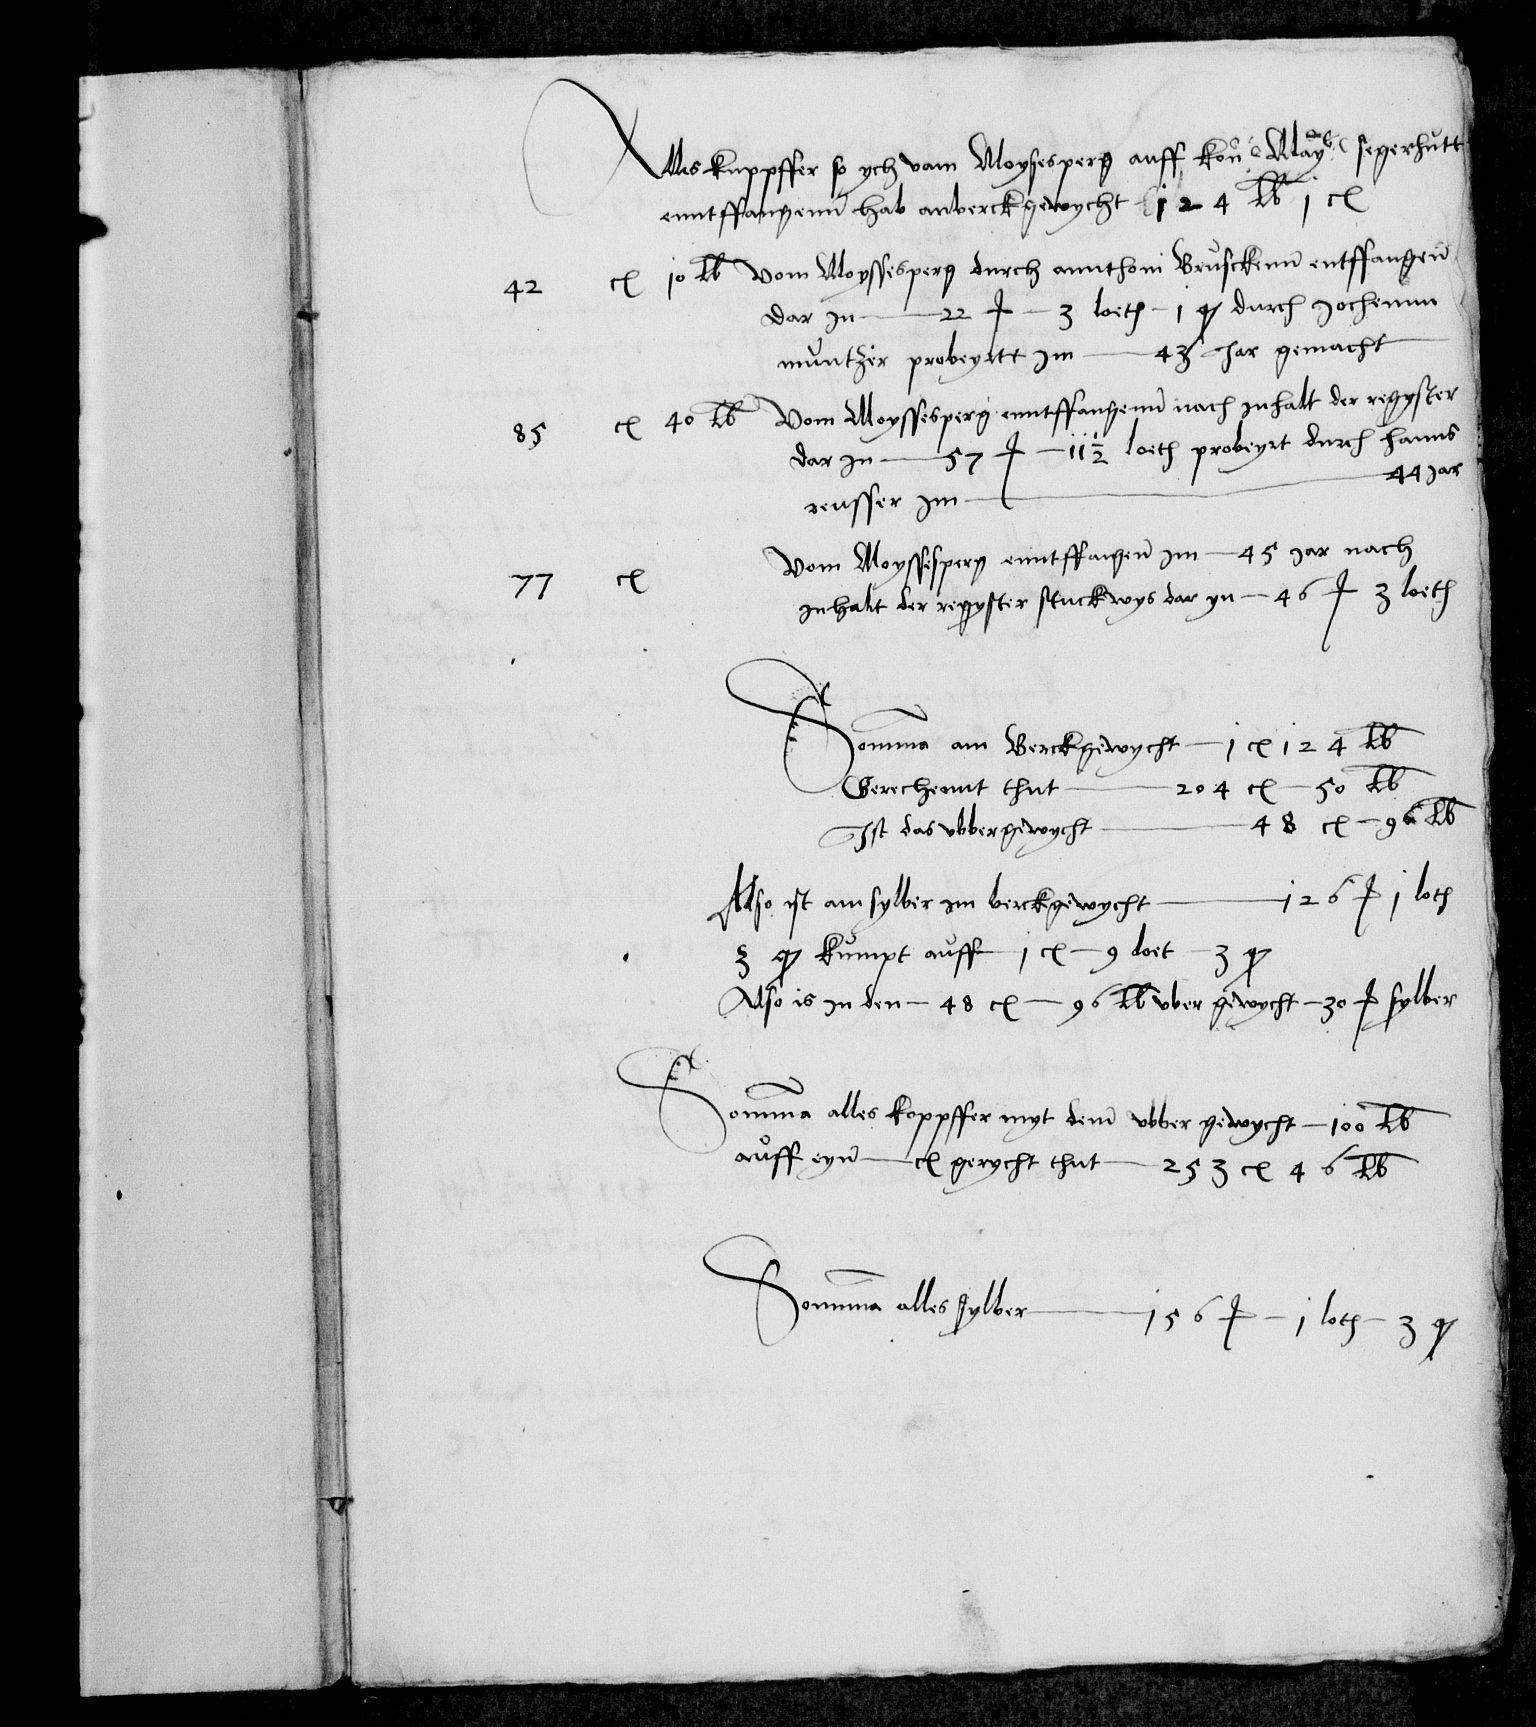 Alles kuppffer so ych vam Moysesperg auff kon May segerhutt
enntffangenn hab anberckgewycht 124 lb 1 ct
42 ct 10 lb Vom Moyssesperg durch annthoni Brusckenn entffangen
Dar In — 22 — 3 loeth — 1 q durch Jochemm
muntzer probeyrtt Im — 43 Jar gemacht
85 ct 40 lb Vom Moyssesperg enntffangenn nach Inhalt der regyster
dar In — 57 — 11½ loeth probeyrt durch hanns
reusser Im — 44 Jar
77 ct Vom Moyssesperg enntffangen Im — 45 Jar nach
Inhalt der regyster stuckwys dar yn — 46 3 loeth
Somma am Berckgewycht — 1 ct 124 lb
Gerechennt thut — 204 ct — 50 lb
Ist das ubbergewycht — 48 ct — 96 lb
Also ist am sylber im berckgewycht — 126 1 loth
3 q kumpt auff — 1 ct — 9 loet — 3 q
Also is In den — 48 ct — 96 lb uber gewycht — 30 sylber
Somma alles koppffer myt dem ubber gewycht — 100 lb
auff eyn — ct gerycht thut — 253 ct 46 lb
Somma alles sylber — 156 — 1 loth — 3 q